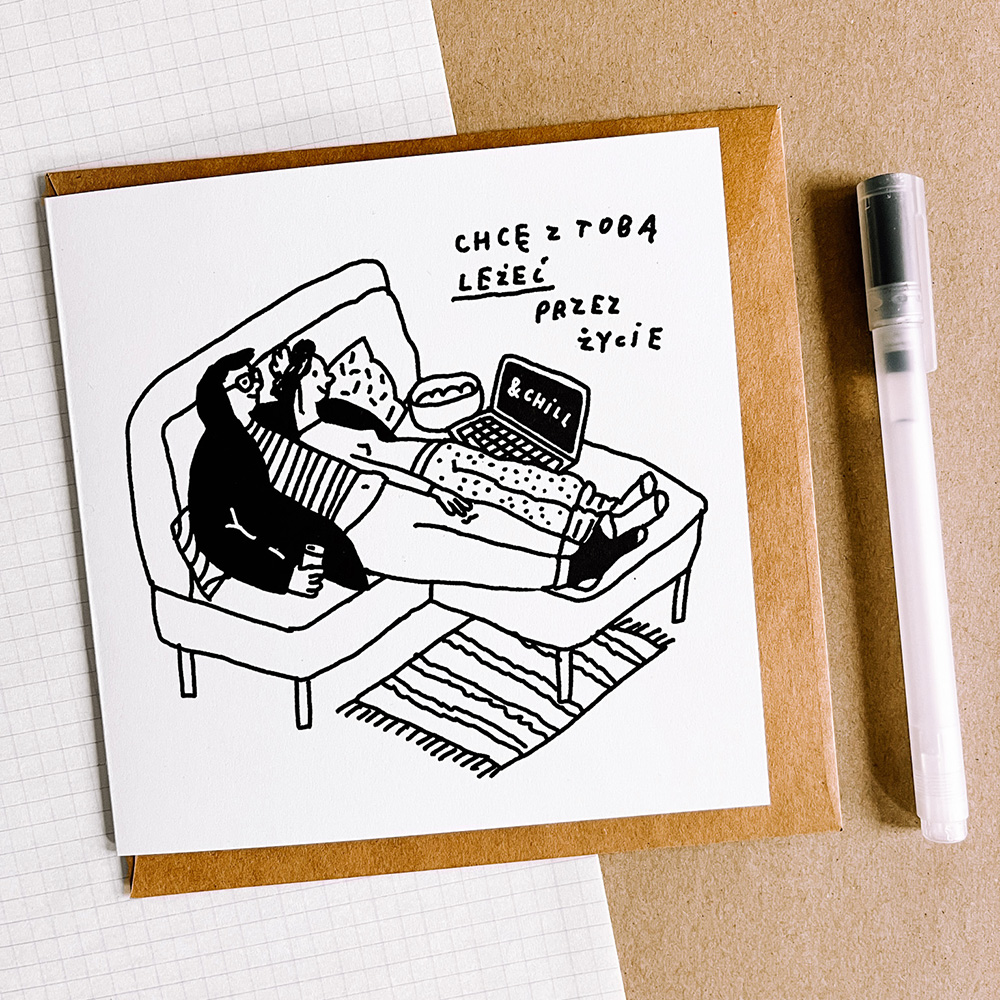 CHCĘ Z TOBĄ
LEŻEĆ
PRZEZ
ŻYCIE
&CHILL